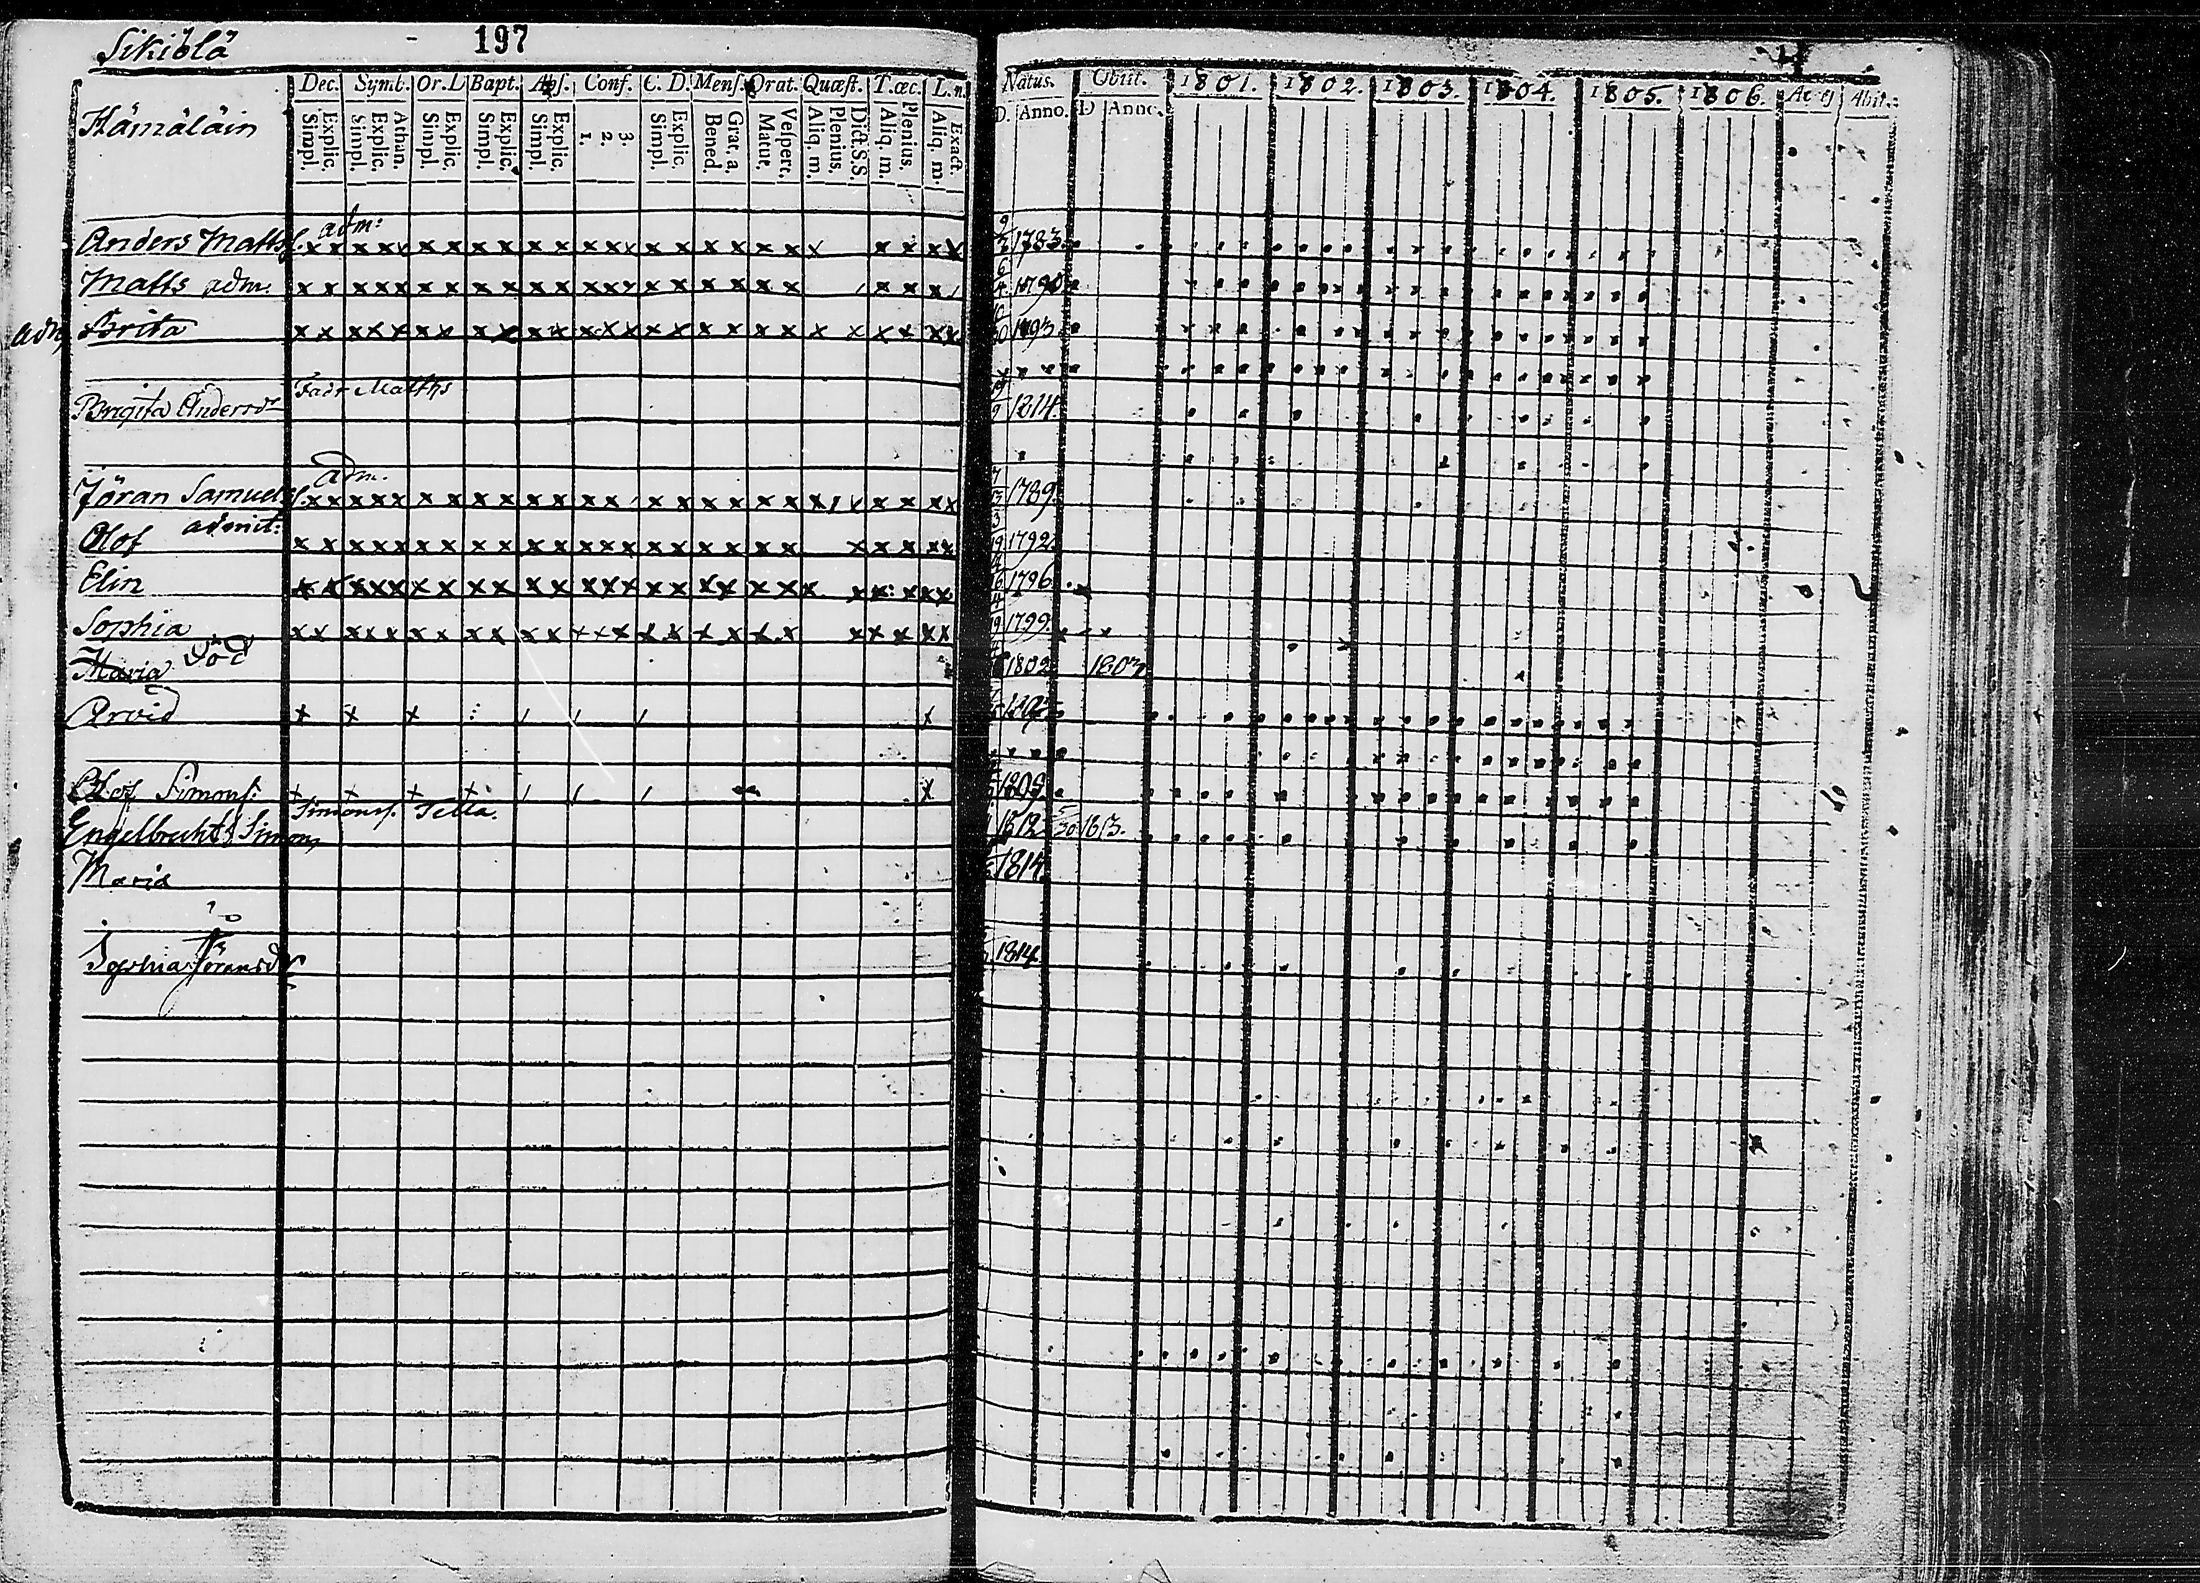 Sikiölä 197
Hämäläin
Dec. Symb. Or. D Bapt. Abs. Conf. C. D. Mens. Orat. Quæst. T. œc. L. n.
Explic. Simpl. Athan. Explic. Simpl. Explic. Simpl. Explic. Simpl. Explic. Simpl. 3. 2. 1. Explic. Simpl. Grat. a. Bened. Vespert. Matut. Dict. S.S. Plenius. Aliq. m. Plenius. Aliq. m. Exact. Aliq. m.
Natus. Obiit. 1801. 1802. 1803. 1804. 1805. 1806. Abiit.
D. Anno. D Anno.
adm:
Anders Mattss. 1783
Matts adm. 1790
adm Brita 1793
Fadr Matths
Brigita Andersdr 1814
adm.
Jöran Samuelss. 1789
admit:
Olof 1792
Elin 1796
Sophia 1799
Maria död 1802 1803
Arvid
Olof Simonss: 1809
Simonss. Tella.
Engelbrecht Simons 1812 30 1813.
Maria 1814
Sophia Jöransdr 1814